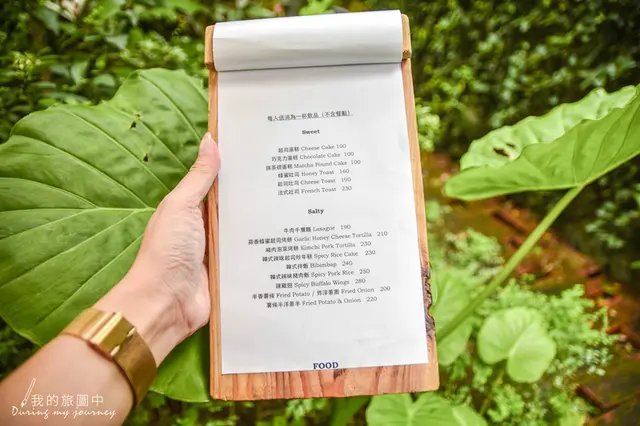 每人低消為一杯飲品（不含餐點）
Sweet
起司蛋糕 Cheese Cake 100
巧克力蛋糕 Chocolate Cake 100
抹茶磅蛋糕 Matcha Pound Cake 100
蜂蜜吐司 Honey Toast 160
起司吐司 Cheese Toast 190
法式吐司 French Toast 230
Salty
牛肉千層麵 Lasagne 190
蒜香蜂蜜起司烤餅 Garlic Honey Cheese Tortilla 210
豬肉泡菜烤餅 Kimchi Pork Tortilla 230
韓式辣味起司炒年糕 Spicy Rice Cake 230
韓式拌飯 Bibimbap 240
韓式辣味豬肉飯 Spicy Pork Rice 250
辣雞翅 Spicy Buffalo Wings 280
辛香薯條 Fried Potato / 炸洋蔥圈 Fried Onion 200
薯條半洋蔥半 Fried Potato & Onion 220
FOOD
我的旅圖中
During my journey